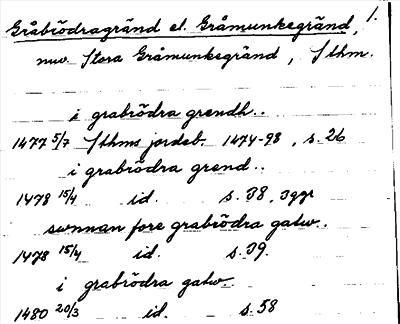 Gråbrödragränd el. Gråmunkegränd, 1.
nuv. Stora Gråmunkegränd, Sthm.
i grabrödra grendh..
1477 5/7 Sthms jordeb. 1474-98, s. 26
i grabrödra grend..
1478 15/4 id. s. 38, 39 gr
sunnan fore grabrödra gatw..
1478 15/4 id. s. 39.
i grabrödra gatw..
1480 20/3 id. s. 58